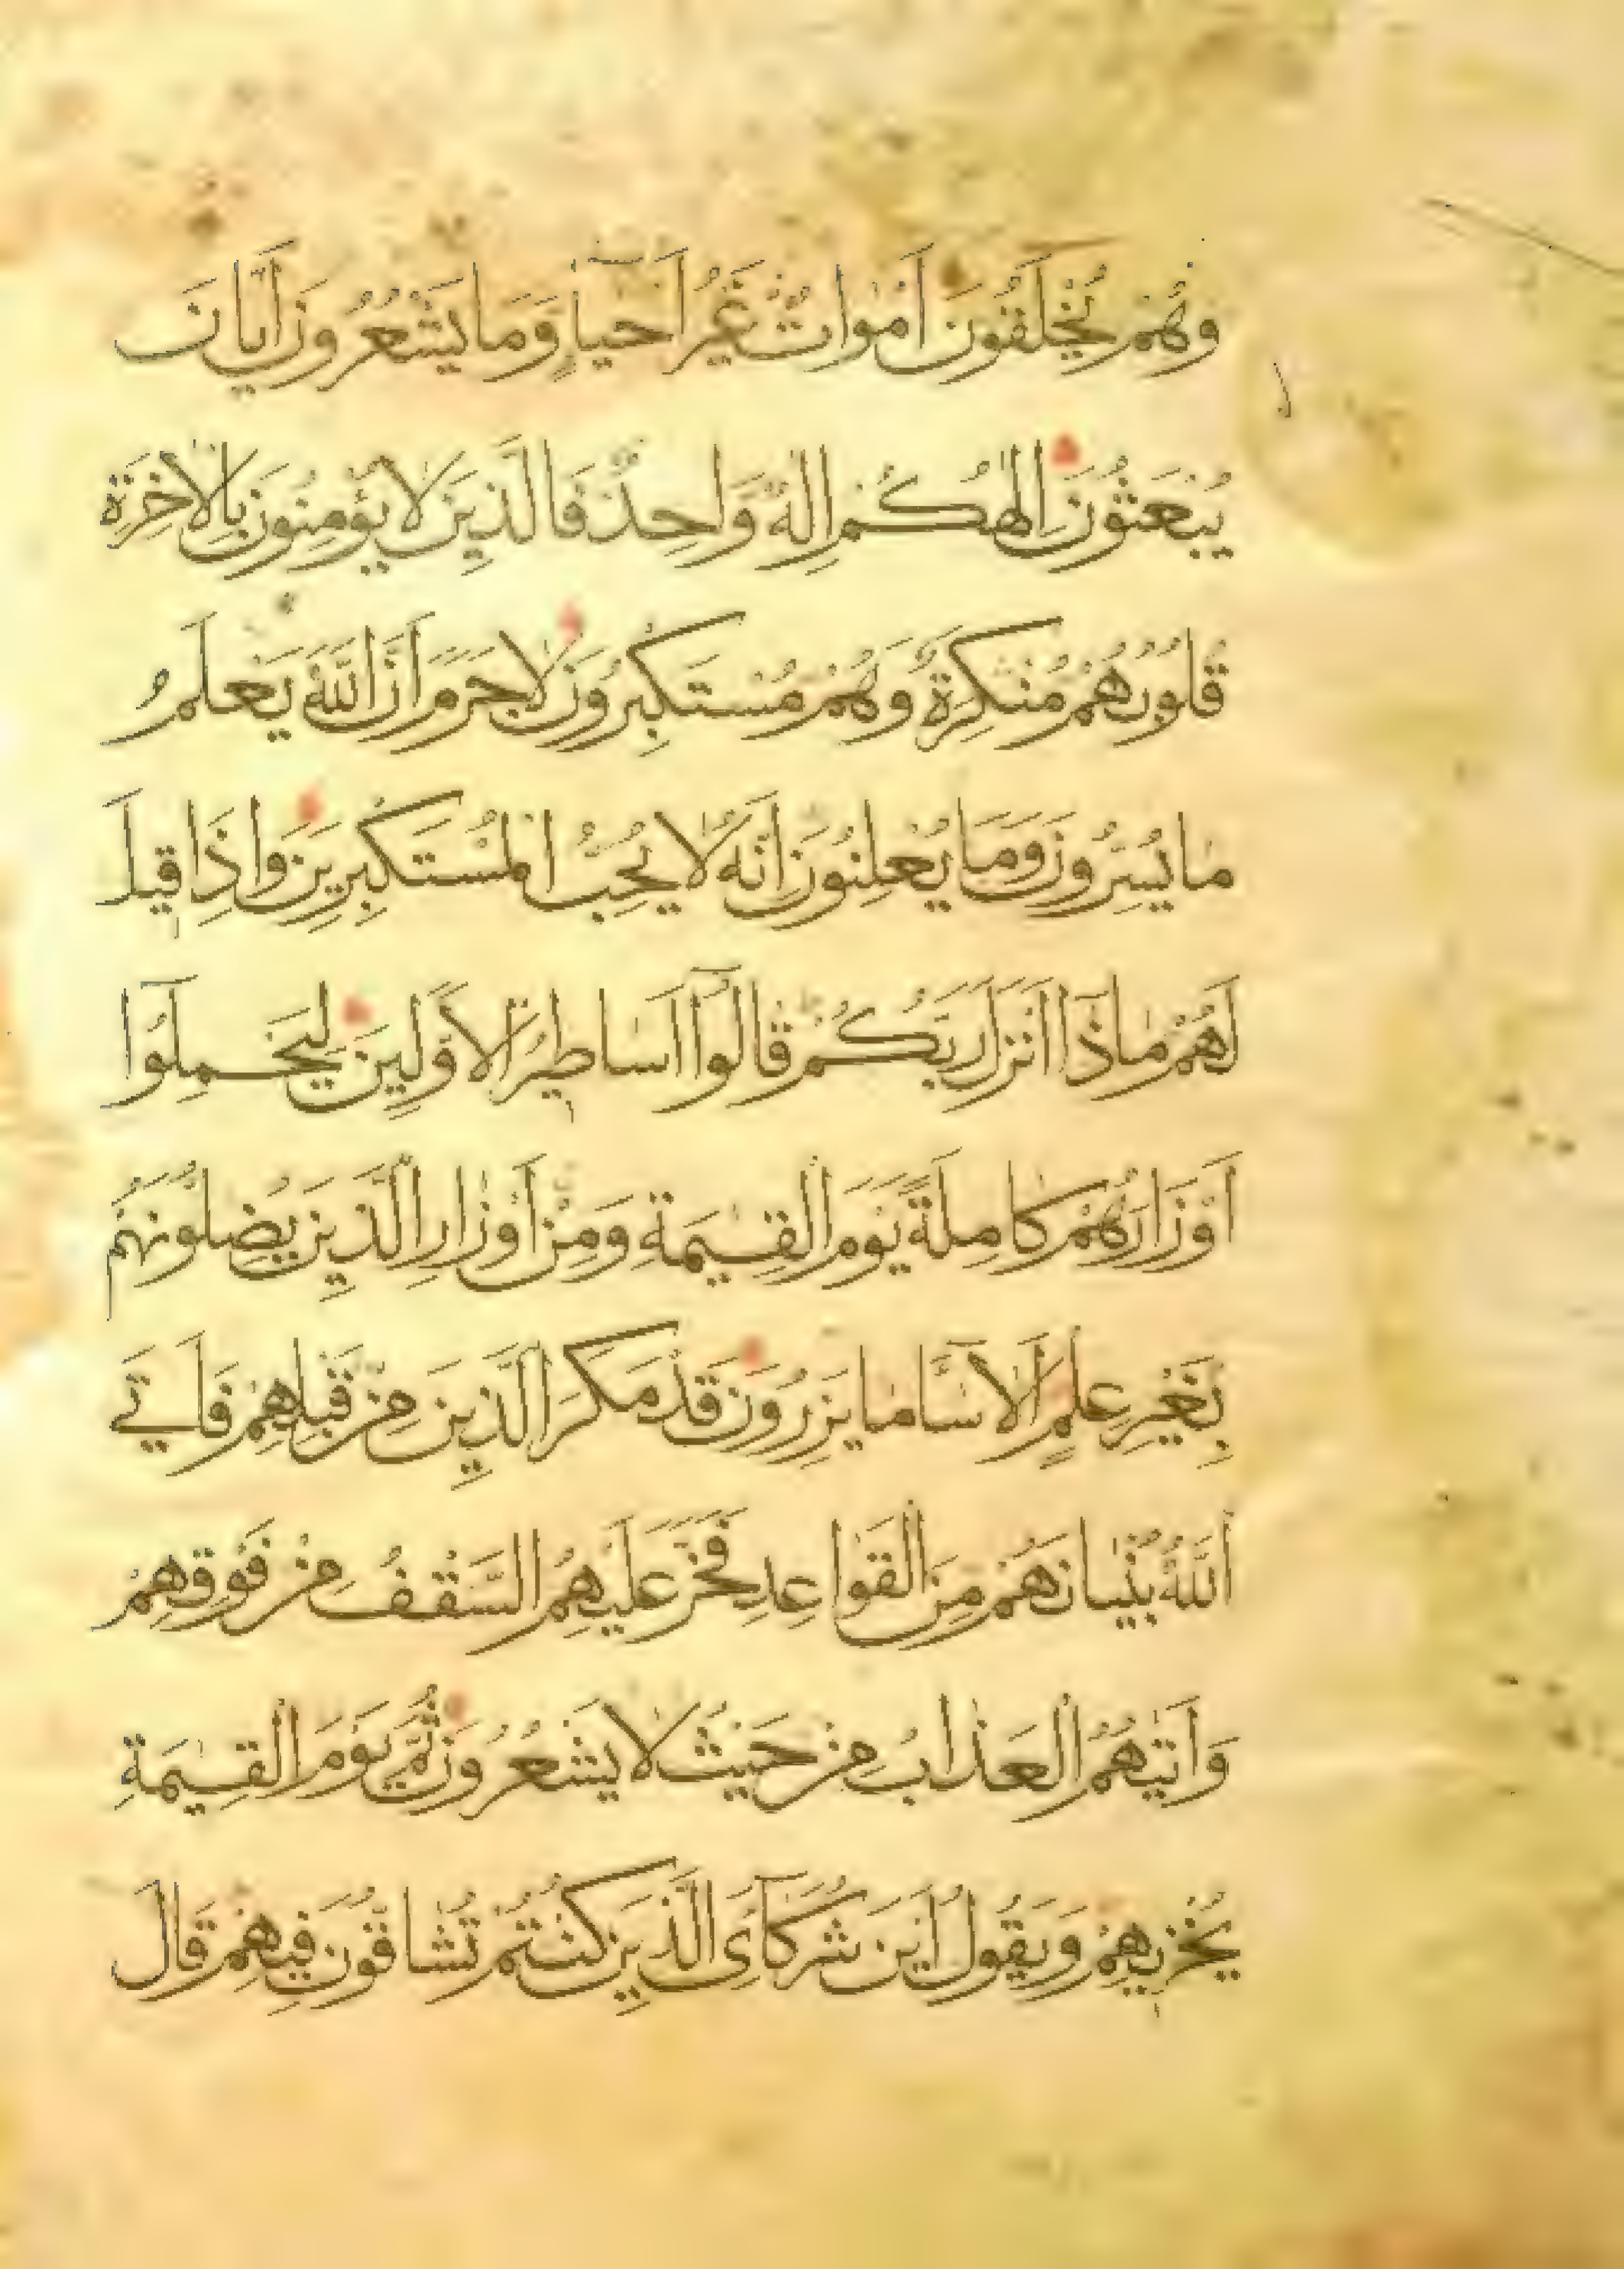 وَهُمْ يُخْلَقُونَ اَمْوَاتٌ غَيْرُ اَحْيَاءٍ وَمَا يَشْعُرُونَ اَيَّانَ
يُبْعَثُونَ اِلٰهُكُمْ اِلٰهٌ وَاحِدٌ فَالَّذِينَ لَا يُؤْمِنُونَ بِالْاٰخِرَةِ
قُلُوبُهُمْ مُنْكِرَةٌ وَهُمْ مُسْتَكْبِرُونَ لَا جَرَمَ اَنَّ اللّٰهَ يَعْلَمُ
مَا يُسِرُّونَ وَمَا يُعْلِنُونَ اِنَّهُ لَا يُحِبُّ الْمُسْتَكْبِرِينَ وَاِذَا قِيلَ
لَهُمْ مَاذَٓا اَنْزَلَ رَبُّكُمْ قَالُٓوا اَسَاطِيرُ الْاَوَّلِينَ لِيَحْمِلُٓوا
اَوْزَارَهُمْ كَامِلَةً يَوْمَ الْقِيٰمَةِ وَمِنْ اَوْزَارِ الَّذِينَ يُضِلُّونَهُمْ
بِغَيْرِ عِلْمٍ اَلَا سَٓاءَ مَا يَزِرُونَ قَدْ مَكَرَ الَّذِينَ مِنْ قَبْلِهِمْ فَاَتَى
اللّٰهُ بُنْيَانَهُمْ مِنَ الْقَوَاعِدِ فَخَرَّ عَلَيْهِمُ السَّقْفُ مِنْ فَوْقِهِمْ
وَاَتٰيهُمُ الْعَذَابُ مِنْ حَيْثُ لَا يَشْعُرُونَ ثُمَّ يَوْمَ الْقِيٰمَةِ
يُخْزِيهِمْ وَيَقُولُ اَيْنَ شُرَكَٓاءِىَ الَّذِينَ كُنْتُمْ تُشَاقُّونَ فِيهِمْ قَالَ